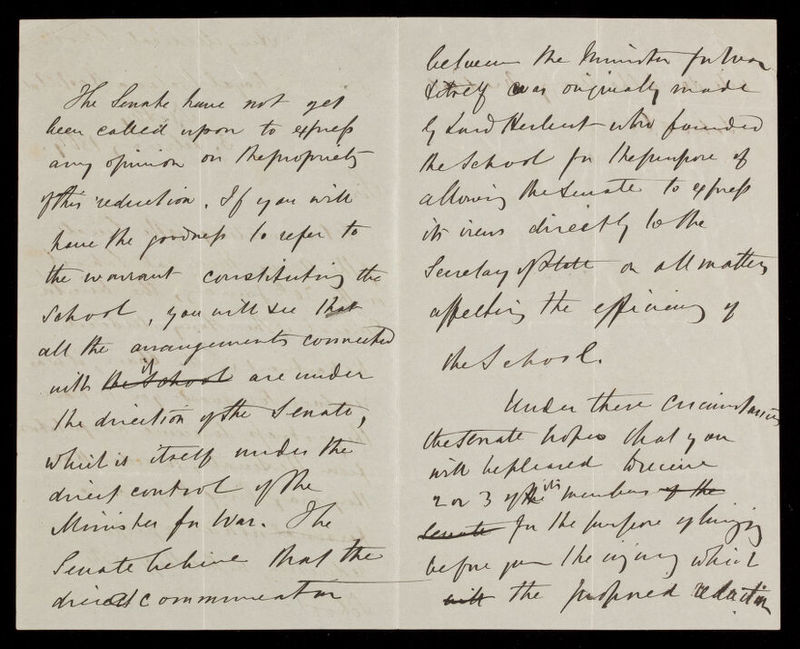 The Senate have not yet
been called upon to express
any opinion on the propriety
of this reduction. If you will
have the goodness to refer to
the warrant constituting the
School, you will see that
all the arrangements connected
with the School it are under
the direction of the Senate,
which is itself under the
direct control of the
Minister for War. The
Senate believe that the
direct communication
between the Minister for War
& itself was originally made
by Lord Herbert who founded
the School for the purpose of
allowing the Senate to express
its views directly to the
Secretary of State on all matters
affecting the efficiency of
the School.
Under these circumstances
the Senate hopes that you
will be pleased to receive
2 or 3 of its members of the
Senate for the purpose of bringing
before you the injury which
will the proposed reduction